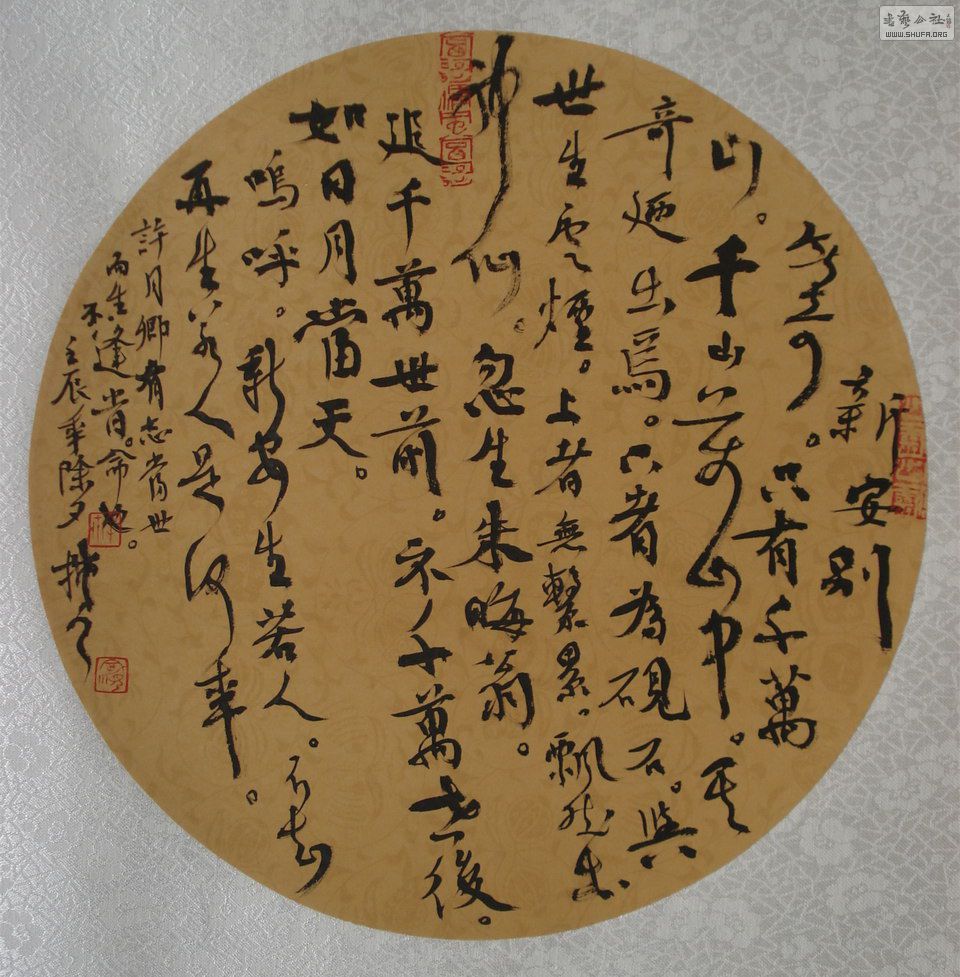 新安別
無奇。只有千萬
山。千山萬山中。其
奇迺出焉。下者為硯石。與
世生雲煙。上者無繫累。飄然出
神仙。忽生朱晦翁。
追千萬世前。示千萬世後。
如日月當天。
嗚呼。新安生若人。不知
再生若人是何年。
許月卿有志當世
而生不逢時。命也。
壬辰年除夕
書藝公社
WWW.SHUFA.ORG